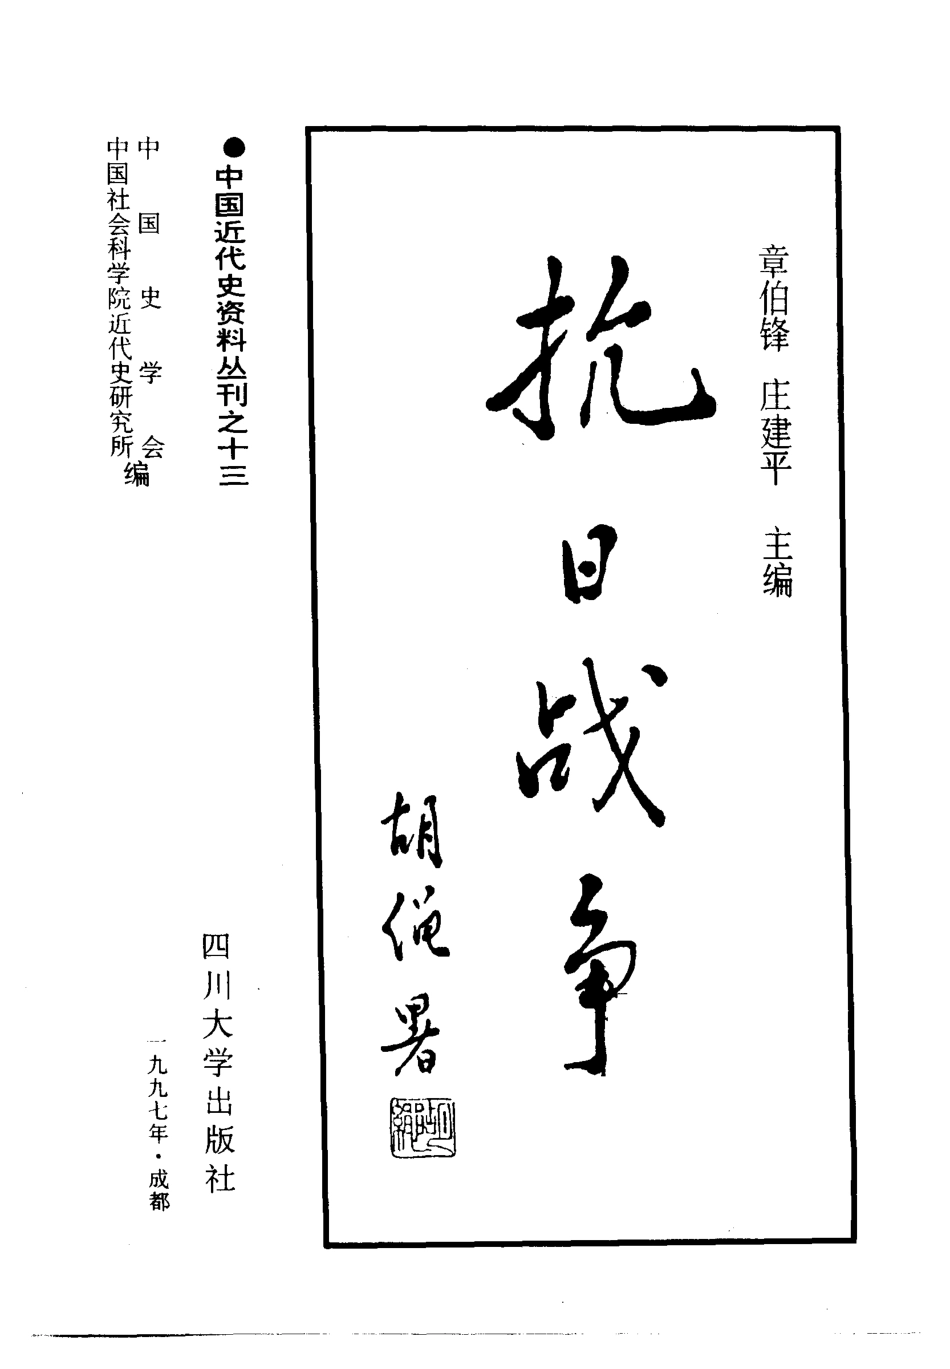 章伯锋 庄建平 主编
抗日战争
胡绳署
胡绳
●中国近代史资料丛刊之十三
中国史学会
中国社会科学院近代史研究所
编
四川大学出版社
一九九七年·成都